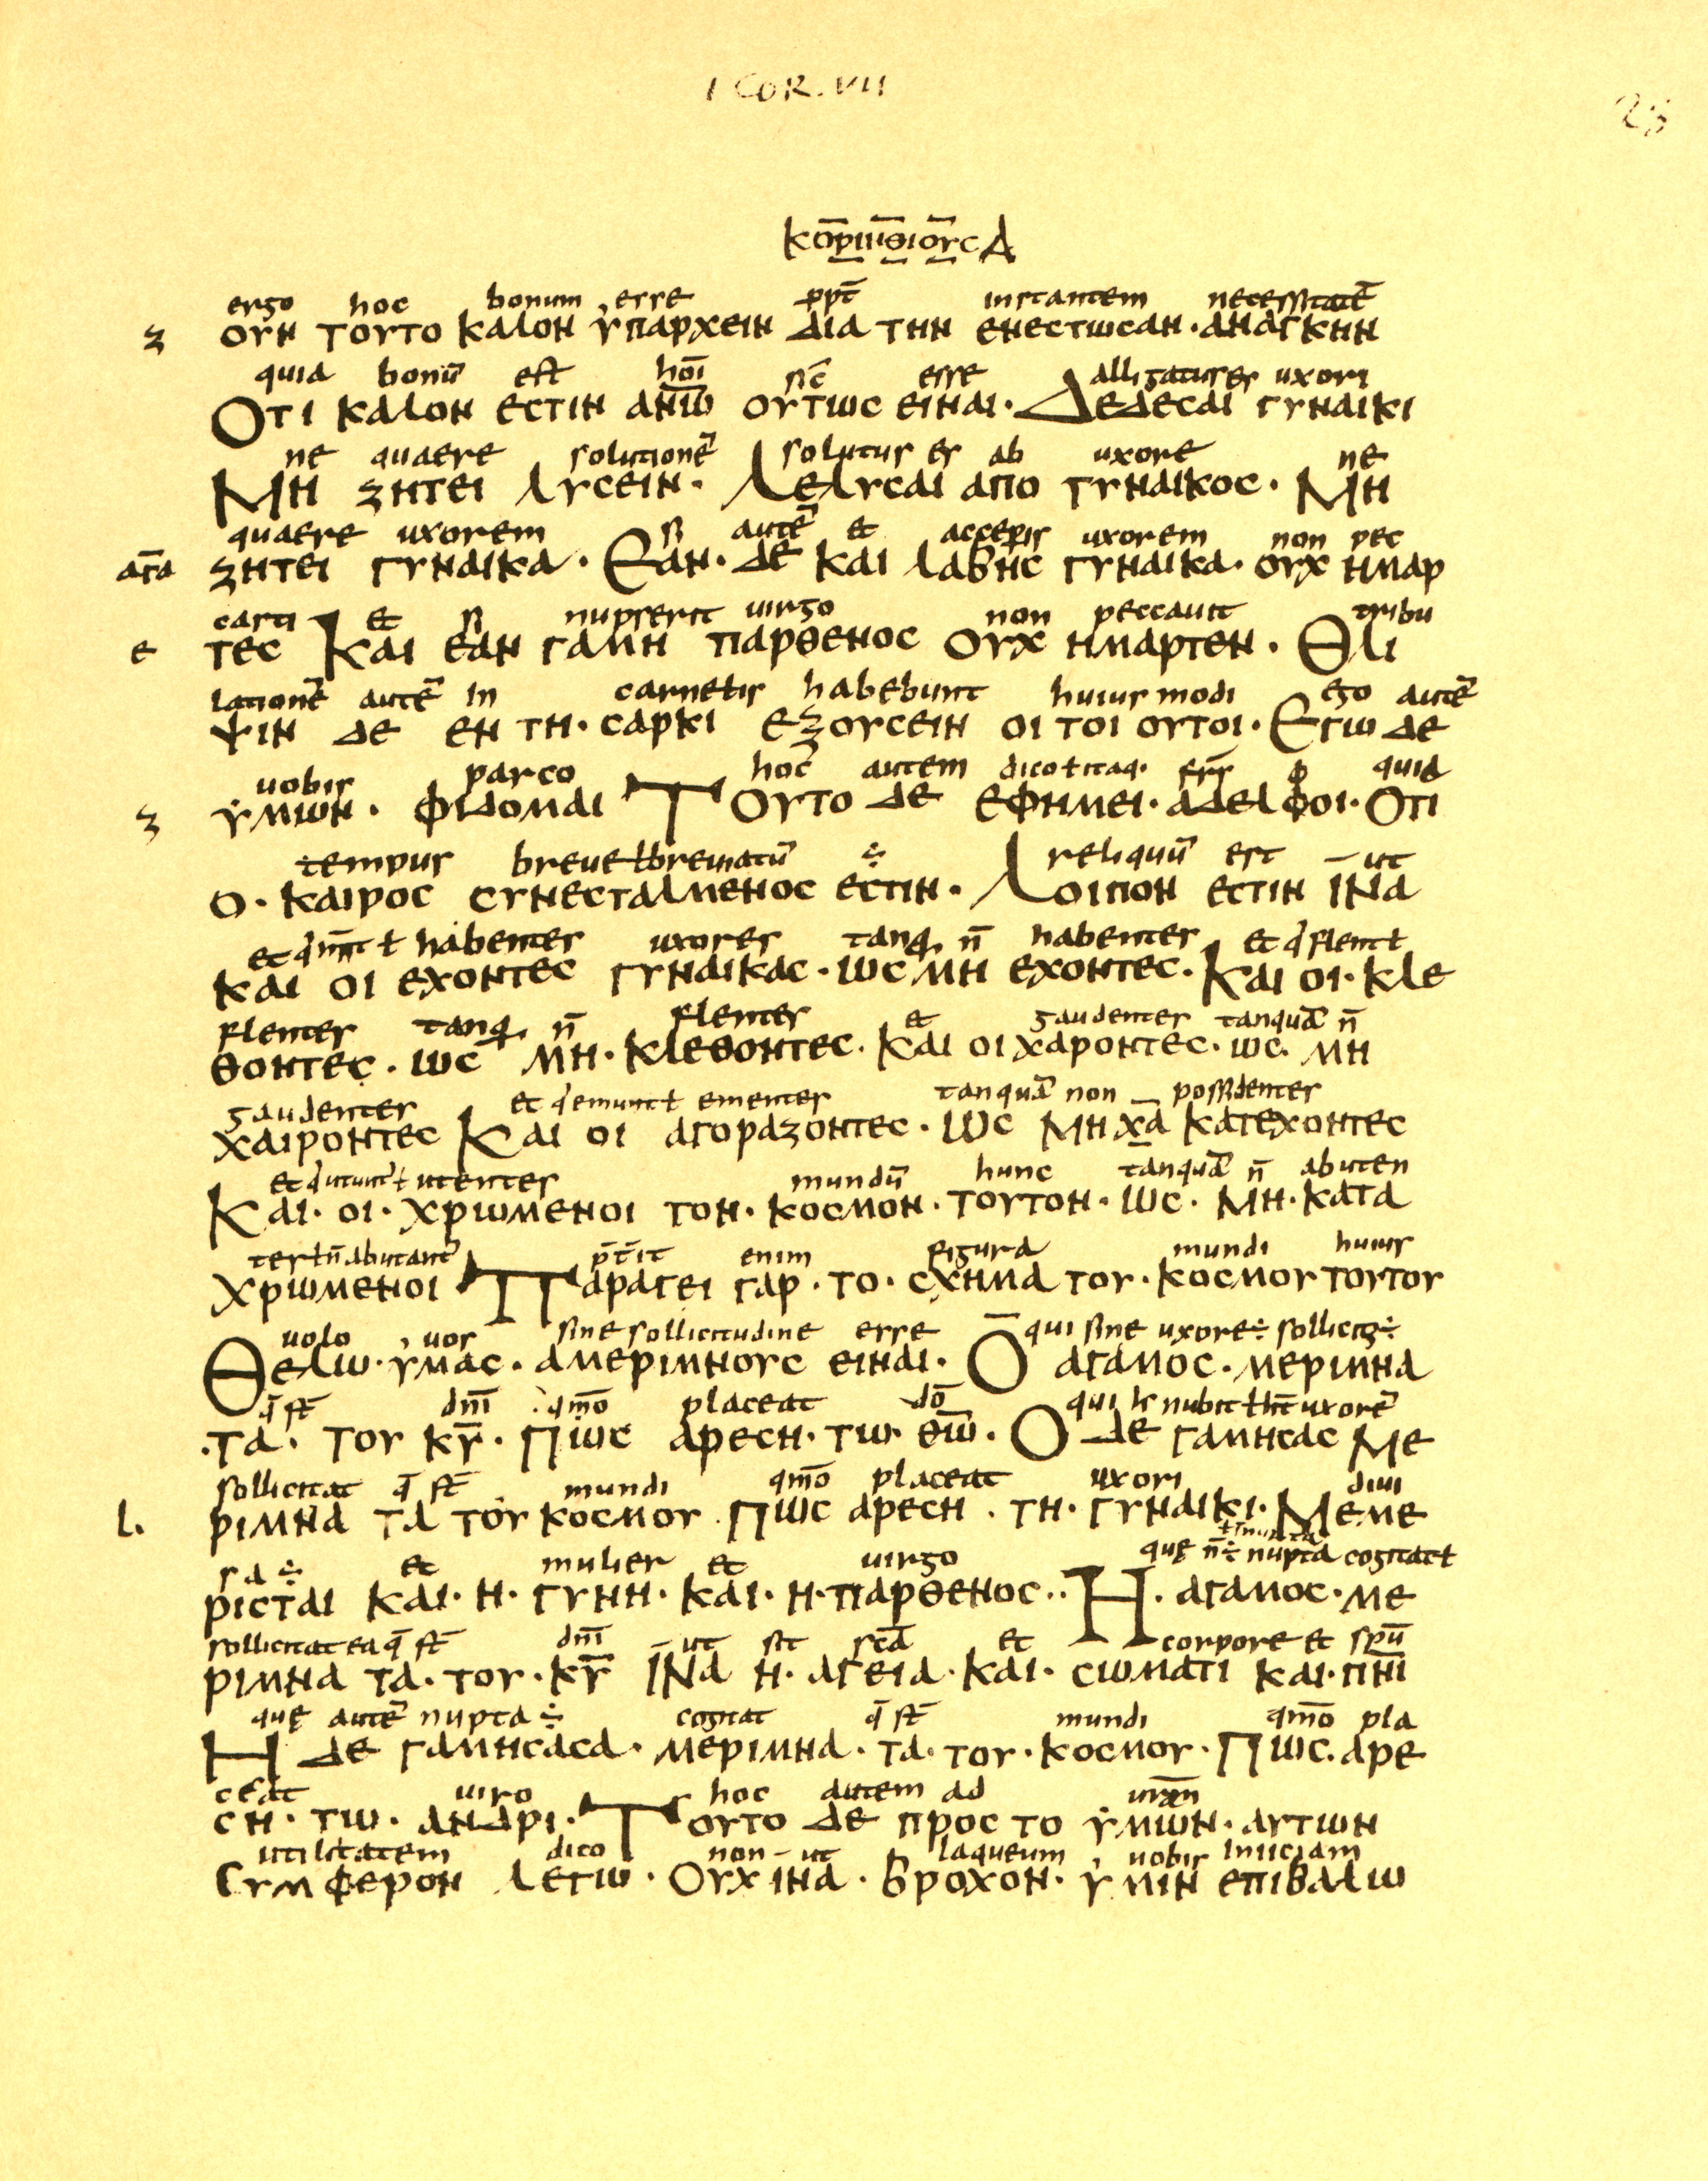 I COR. VII
ΚΟΡΙΝΘΙΟΥС Α
ergo hoc bonum esse ppt̄ instantem necessitatē
ΟΥΝ ΤΟΥΤΟ ΚΑΛΟΝ ΥΠΑΡΧΕΙΝ ΔΙΑ ΤΗΝ ΕΝΕСΤΩСΑΝ· ΑΝΑΓΚΗΝ
quia bonū est hoī sic esse alligatus es uxori
ΟΤΙ ΚΑΛΟΝ ΕСΤΙΝ ΑΝΩ̄ ΟΥΤΩС ΕΙΝΑΙ· ΔΕΔΕСΑΙ ΓΥΝΑΙΚΙ
ne quaere solutionē solutus es ab uxore ne
ΜΗ ΖΗΤΕΙ ΛΥСΕΙΝ· ΛΕΛΥСΑΙ ΑΠΟ ΓΥΝΑΙΚΟС· ΜΗ
quaere uxorem si autē et acceperis uxorem non pec
ΖΗΤΕΙ ΓΥΝΑΙΚΑ· ΕΑΝ· ΔΕ ΚΑΙ ΛΑΒΗС ΓΥΝΑΙΚΑ· ΟΥΧ ΗΜΑΡ
casti et si nupserit uirgo non peccauit tribu
ΤΕС ΚΑΙ ΕΑΝ ΓΑΜΗ ΠΑΡΘΕΝΟС ΟΥΧ ΗΜΑΡΤΕΝ· ΘΛΙ
lationē autē in carnetis habebunt huius modi ego autē
ΨΙΝ ΔΕ ΕΝ ΤΗ· СΑΡΚΙ ΕΞΟΥСΕΙΝ ΟΙ ΤΟΙ ΟΥΤΟΙ· ΕΓΩ ΔΕ
uobis parco hoc autem dico ł itaq· frs̄ o quia
ΥΜΩΝ· ΦΙΔΟΜΑΙ ΤΟΥΤΟ ΔΕ ΕΦΗΜΕΙ· ΑΔΕΛΦΟΙ· ΟΤΙ
tempus breue ł breuiatū ÷ reliquū est ut
Ο· ΚΑΙΡΟС СΥΝΕСΤΑΛΜΕΝΟС ΕСΤΙΝ· ΛΟΙΠΟΝ ΕСΤΙΝ ΙΝΑ
habentes uxores tanq· n̄ habentes et q flent ł
ΚΑΙ ΟΙ ΕΧΟΝΤΕС ΓΥΝΑΙΚΑС· ΩС ΜΗ ΕΧΟΝΤΕС· ΚΑΙ ΟΙ· ΚΛΕ
flentes tanq· n̄ flentes et gaudentes tanquā n̄
ΘΟΝΤΕС· ΩС ΜΗ· ΚΛΕΘΟΝΤΕС· ΚΑΙ ΟΙ ΧΑΡΟΝΤΕС· ΩС· ΜΗ
gaudentes et q emunt ł ementes tanquā non possidentes
ΧΑΙΡΟΝΤΕС ΚΑΙ ΟΙ ΑΓΟΡΑΖΟΝΤΕС· ΩС ΜΗ ΧΑ ΚΑΤΕΧΟΝΤΕС
et q utunt̄ ł utentes mundū hunc tanquā n̄ abuten
ΚΑΙ· ΟΙ· ΧΡΩΜΕΝΟΙ ΤΟΝ· ΚΟСΜΟΝ· ΤΟΥΤΟΝ· ΩС· ΜΗ· ΚΑΤΑ
tes ł n̄ abutant̄ p̄t̄it enim figura mundi huius
ΧΡΩΜΕΝΟΙ ΠΑΡΑΓΕΙ ΓΑΡ· ΤΟ· СΧΗΜΑ ΤΟΥ· ΚΟСΜΟΥ ΤΟΥΤΟΥ
uolo uos sine sollicitudine esse qui sine uxore ÷ sollicit ÷
ΘΕΛΩ· ΥΜΑС· ΑΜΕΡΙΜΝΟΥС ΕΙΝΑΙ· Ο ΑΓΑΜΟС· ΜΕΡΙΜΝΑ
q̄ st̄ dn̄i qm̄o placeat dō
·ΤΑ· ΤΟΥ ΚῩ· ΠΩС ΑΡΕСΗ· ΤΩ· ΘΩ̄· Ο ΔΕ ΓΑΜΗСΑС ΜΕ
sollicitat q̄ st̄ mundi qm̄o placeat uxori diui
ΡΙΜΝΑ ΤΑ ΤΟΥ ΚΟСΜΟΥ· ΠΩС ΑΡΕСΗ· ΤΗ· ΓΥΝΑΙΚΙ· ΜΕΜΕ
sa ÷ et mulier et uirgo quę n̄ ÷ nupta cogitat ł
ΡΙСΤΑΙ ΚΑΙ· Η· ΓΥΝΗ· ΚΑΙ· Η· ΠΑΡΘΕΝΟС·· Η· ΑΓΑΜΟС· ΜΕ
sollicitat ea q̄ st̄ dn̄i ut sit scā et corpore et spū
ΡΙΜΝΑ ΤΑ· ΤΟΥ· ΚῩ ΙΝΑ Η· ΑΓΕΙΑ· ΚΑΙ· СΩΜΑΤΙ ΚΑΙ· ΠΝΙ
quę autē nupta ÷ cogitat q̄ st̄ mundi qm̄o pla
Η ΔΕ ΓΑΜΗСΑСΑ· ΜΕΡΙΜΝΑ· ΤΑ· ΤΟΥ· ΚΟСΜΟΥ· ΠΩС· ΑΡΕ
ceat uiro hoc autem ad
СΗ· ΤΩ· ΑΝΔΡΙ· ΤΟΥΤΟ ΔΕ ΠΡΟС ΤΟ ΥΜΩΝ· ΑΥΤΩΝ
utilitatem dico non ut laqueum uobis iniiciam
СΥΜΦΕΡΟΝ ΛΕΓΩ· ΟΥΧ ΙΝΑ· ΒΡΟΧΟΝ· ΥΜΙΝ ΕΠΙΒΑΛΩ